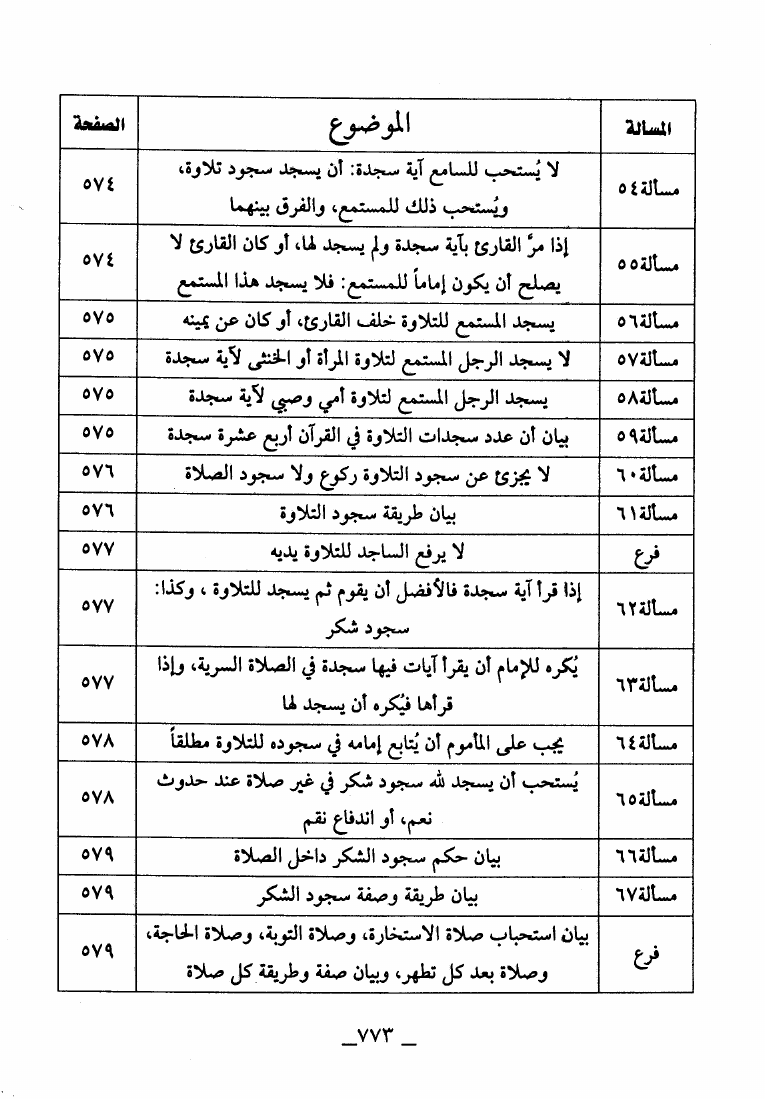 المسالة الموضوع الصفحة
مسألة٥٤ لا يُستحب للسامع آية سجدة: أن يسجد سجود تلاوة، ٥٧٤
ويُستحب ذلك للمستمع، والفرق بينهما
مسألة٥٥ إذا مرَّ القارئ بآية سجدة ولم يسجد لها، أو كان القارئ لا ٥٧٤
يصلح أن يكون إماماً للمستمع: فلا يسجد هذا المستمع
مسألة٥٦ يسجد المستمع للتلاوة خلف القارئ، أو كان عن يمينه ٥٧٥
مسألة٥٧ لا يسجد الرجل المستمع لتلاوة المرأة أو الخنثى لآية سجدة ٥٧٥
مسألة٥٨ يسجد الرجل المستمع لتلاوة أمي وصبي لآية سجدة ٥٧٥
مسألة٥٩ بيان أن عدد سجدات التلاوة في القرآن أربع عشرة سجدة ٥٧٥
مسألة٦٠ لا يجزئ عن سجود التلاوة ركوع ولا سجود الصلاة ٥٧٦
مسألة٦١ بيان طريقة سجود التلاوة ٥٧٦
فرع لا يرفع الساجد للتلاوة يديه ٥٧٧
مسألة٦٢ إذا قرأ آية سجدة فالأفضل أن يقوم ثم يسجد للتلاوة ، وكذا: ٥٧٧
سجود شكر
مسألة٦٣ يُكره للإمام أن يقرأ آيات فيها سجدة في الصلاة السرية، وإذا ٥٧٧
قرأها فيُكره أن يسجد لها
مسألة٦٤ يجب على المأموم أن يُتابع إمامه في سجوده للتلاوة مطلقاً ٥٧٨
مسألة٦٥ يُستحب أن يسجد لله سجود شكر في غير صلاة عند حدوث ٥٧٨
نعم، أو اندفاع نقم
مسألة٦٦ بيان حكم سجود الشكر داخل الصلاة ٥٧٩
مسألة٦٧ بيان طريقة وصفة سجود الشكر ٥٧٩
فرع بيان استحباب صلاة الاستخارة، وصلاة التوبة، وصلاة الحاجة، ٥٧٩
وصلاة بعد كل تطهر، وبيان صفة وطريقة كل صلاة
_ ٧٧٣ _